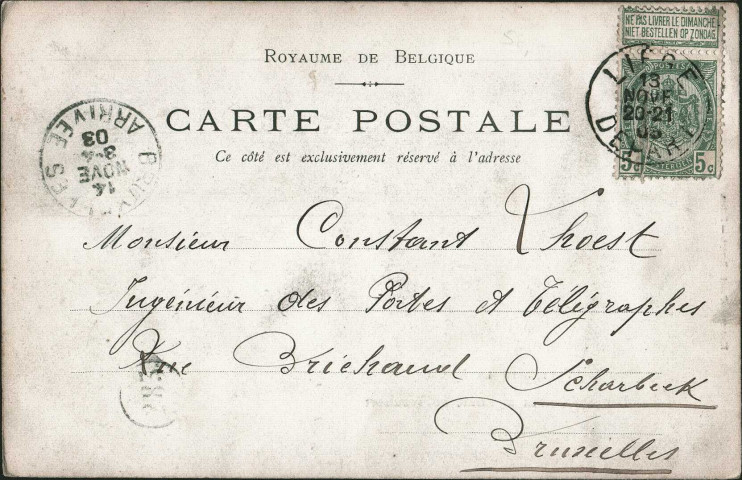 NE PAS LIVRER LE DIMANCHE
NIET BESTELLEN OP ZONDAG
ROYAUME DE BELGIQUE
LIEGE
13
NOVE
20-21
DEPART
5c 5c
CARTE POSTALE
Ce côté est exclusivement réservé à l'adresse
BRUXELLES
ARRIVEE
14
NOVE
3-4
03
Monsieur Constant Thoest
Ingénieur des Postes et Télégraphes
Rue Brichaud Scharbeek
Bruxelles